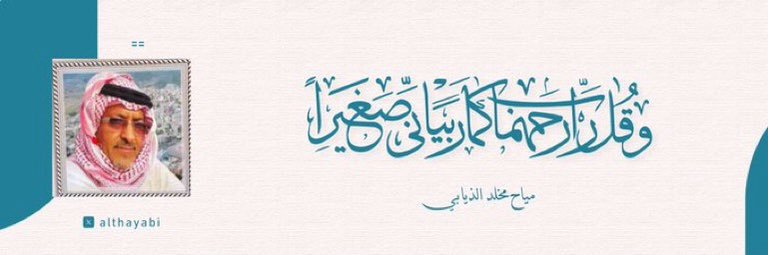 وَقُل رَّبِّ ارْحَمْهُمَا كَمَا رَبَّيَانِي صَغِيرًا
مياح مخلد الذيابي
althayabi